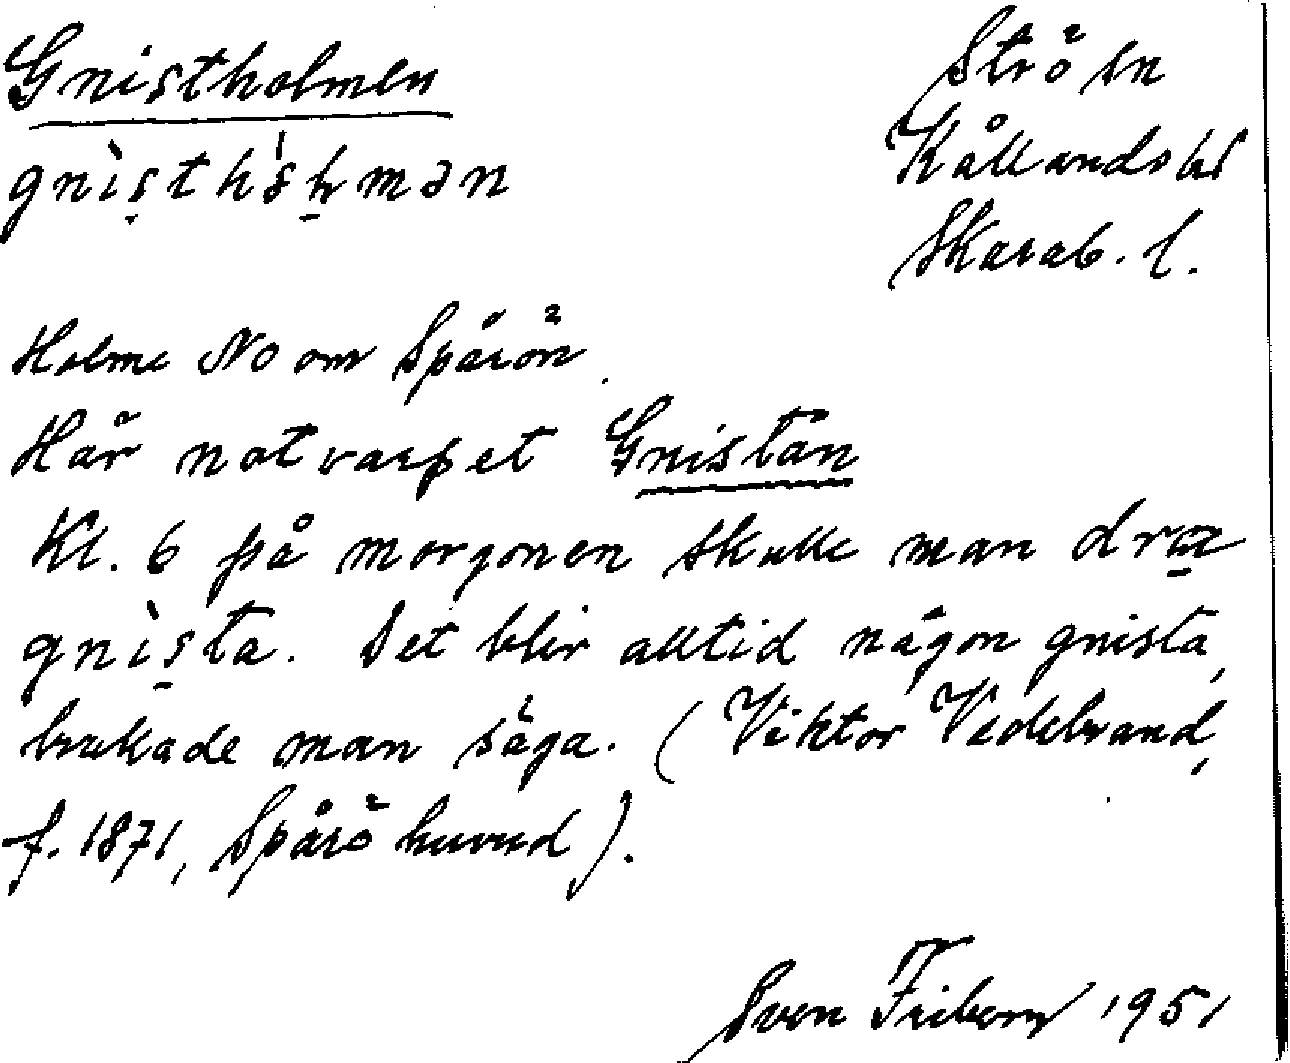 Gnistholmen
Strö sn
Kållands hd
Skarab. l.
gnisthɔḷmən
Holme NO om Spårön.
Här notvarpet Gnistan
Kl. 6 på morgonen skulle man dra
gnista. Det blir alltid någon gnista,
brukade man säga. (Viktor Vedebrand,
f. 1871, Spårö huvud).
Sven Friberg 1951